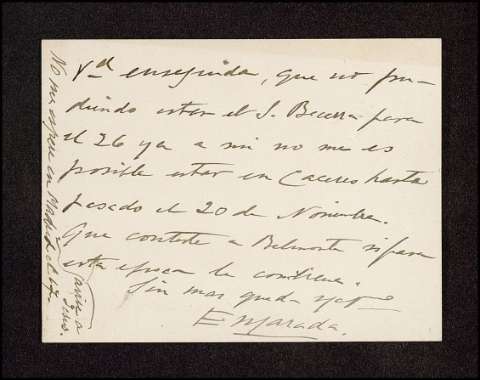 Vd enseguida, que no pu-
diendo estar el S. Becerra para
el 26 ya a mi no me es
posible estar en Caceres hasta
pasado el 20 de Noviembre.
Que conteste a Belmonte si para
esta epoca le conviene.
Sin mas queda
E Marada.
No me espere en Madrid el 17